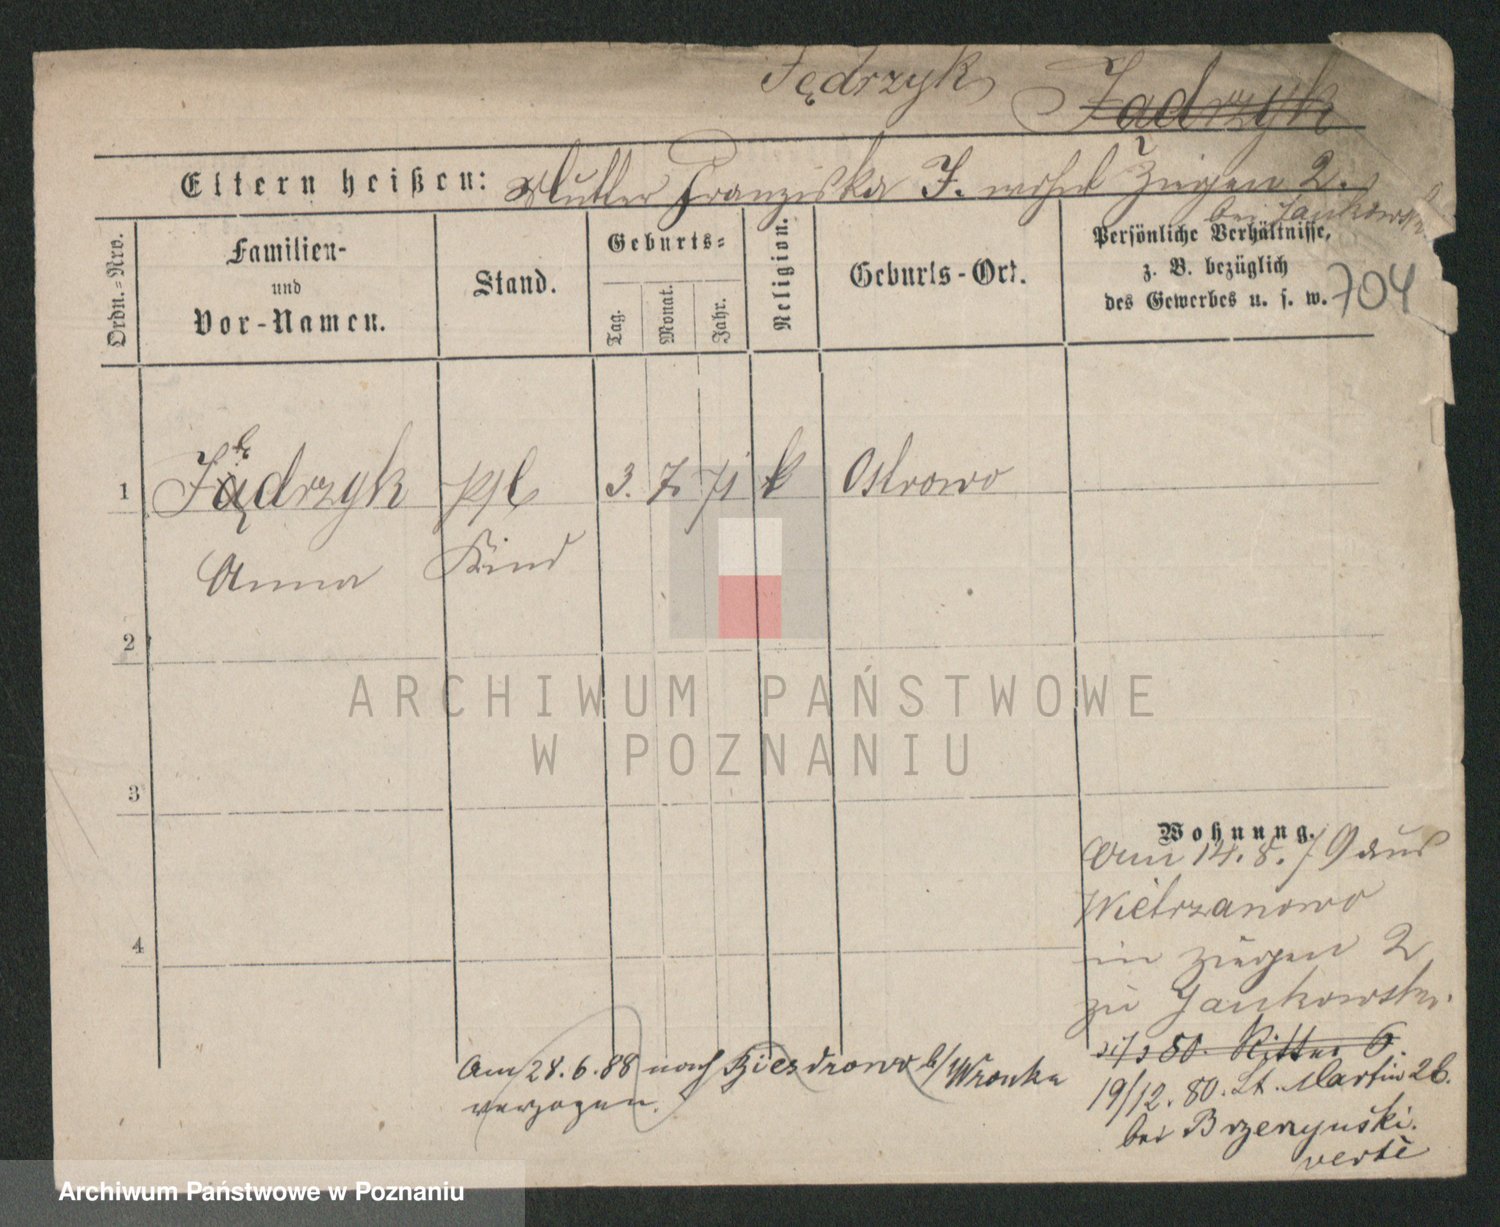 Jędrzyk Jadrzyk
Eltern heißen: Mutter Franziska J. wohnt Ziegen 2.
bei Jankowski
Ordn.-Nro.
Familien-
und
Vor-Namen.
Stand.
Geburts-
Tag.
Monat.
Jahr.
Religion.
Geburts-Ort.
Persönliche Verhältnisse,
z. B. bezüglich
des Gewerbes u. s. w.
704
1 Jędrzyk pfl 3. 7. 71 k Ostrowo
Anna Kind
2
3
4
Wohnung.
Am 14.8.79 aus
Wietrzanowo
in Ziegen 2
zu Jankowski.
80. Ritter 6
19/12. 80. St. Martin 26.
bei Brzenyuski.
verte
Am 28.6.88 nach Biezdrowo b/Wronke
verzogen.
ARCHIWUM PAŃSTWOWE
W POZNANIU
Archiwum Państwowe w Poznaniu